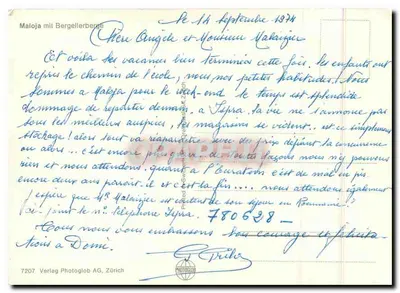 Maloja mit Bergellerberge
le 14 Septembre 1974
Chère Angèle et Monsieur Malaigier
Et voilà les vacances bien terminées cette fois. les enfants ont
repris le chemin de l'école, nous, nos petites habitudes. Nous
sommes à Maloja pour le week-end. le temps est splendide
dommage de repartir demain, à Ispra, la vie ne s'annonce pas
sous les meilleurs auspices, les magasins se vident... et ce simplement
stockage! alors tout va réapparaître avec des prix défiant la concurrence
ou alors... c'est encore de toutes façons nous n'y pouvons
rien et nous attendons, quant à l'Euratom c'est de mal en pis.
encore deux ans paraît-il et c'est la fin.... nous attendons également
J'espère que Mr Malaigier est content de son séjour en Roumanie?
ci-joint le no téléphone Ispra. 780628 -
Tous nous vous embrassons
7207 Verlag Photoglob AG, Zürich